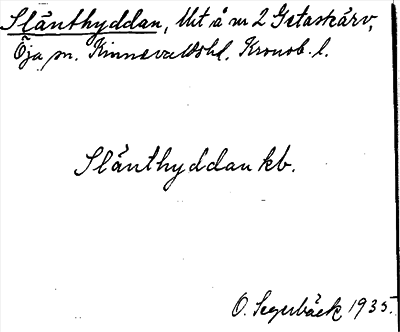 Slänthyddan, Ut å nr 2 Getaskärv,
Öja sn. Kinnevalds hd. Kronob. l.
Slänthyddan kb.
O. Segerbäck 1935.